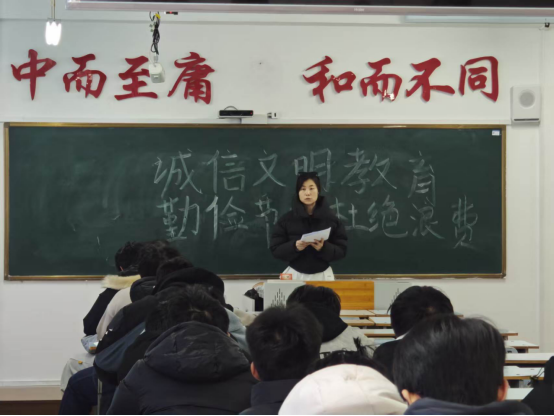 中而至庸 和而不同
诚信文明教育
勤俭节 杜绝浪费